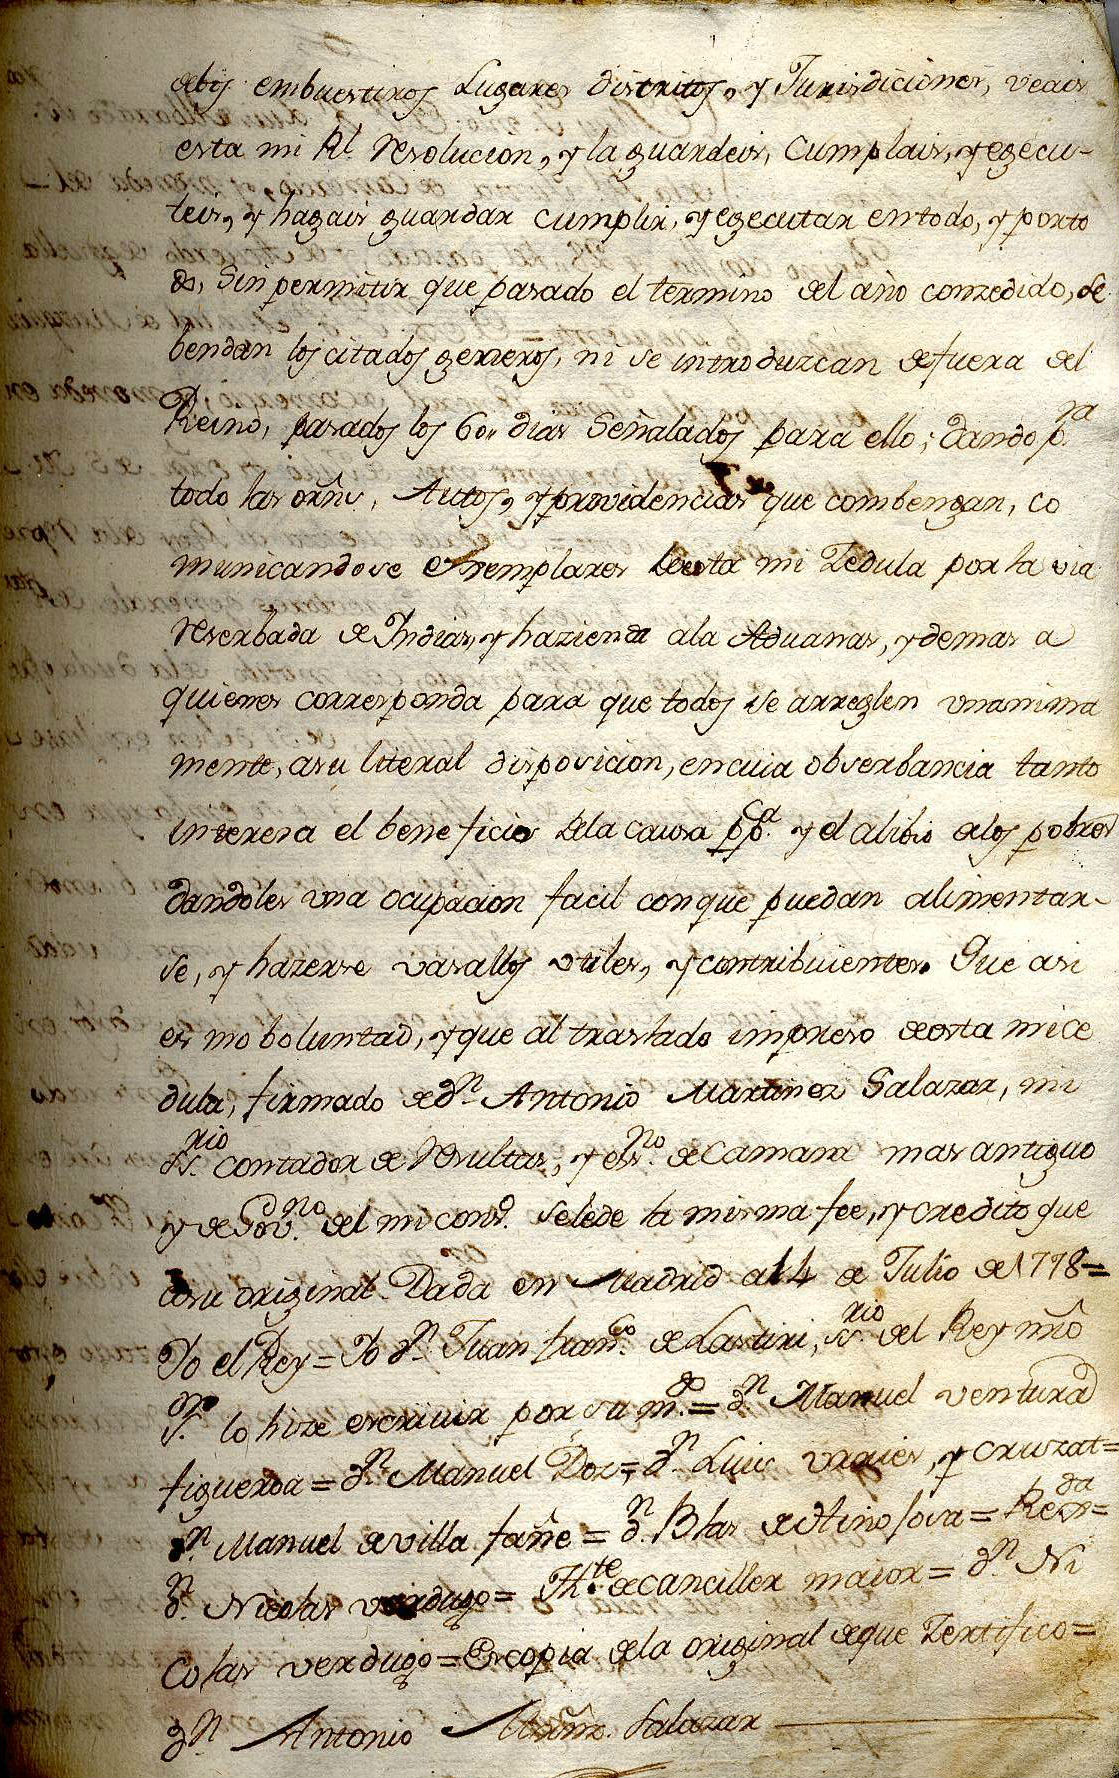 debij embuestros Lugares distritos, y Jurisdiciones, veais
esta mi Rl. resolucion, y la guardeis, Cumplais, y egecu-
teis, y hagais guardar cumplir, y egecutar entodo, y porto
do, Sin permitir que pasado el termino del año conzedido, se
bendan los citados generos, ni se introduzcan defuera del
Reino, pasados los 60,, dias Señalados para ello; dando pra.
todo las ornš, Autos, y providencias que combengan, co
municandose Exemplares desta mi Zedula por la via
reserbada de Indias, y hazienda ala Aduanas, y demas a
quienes corresponda para que todos se arreglen unanima
mente, asu literal disposicion, encuia obserbancia tanto
interesa el beneficio dela causa ppca. y el alibio delos pobres
dandoles una ocupacion facil conque puedan alimentar-
se, y hazerse vasallos utiles, y contribuientes. Que asi
es mo boluntad, y que al traslado impreso desta mi ce
dula, firmado de Dn. Antonio Martinez Salazar, mi
Srio. contador de resultas, y esno. de Camara mas antiguo
y de Govno. del mi Conso. Selede la misma fee, y credito que
asu original. Dada en Madrid a 14 de Julio de 1778=
Yo el Rey = Yo Dn. Juan Franco. de Lastiri, srio. del Rey nrõ
Sor. lo hize escrivir por su mdo. = Dn. Manuel ventura
figueroa = Dn. Manuel Doz = Dn. Luis urries, y Cruzat=
Dn. Manuel de villa fañe = Dn. Blas de = Regda.=
Dn. Nicolas verdugo = Thte. de canciller maior = Dn. Ni
Colas verdugo = Es copia dela original deque Zertifico=
Dn. Antonio Martnz. Salazar